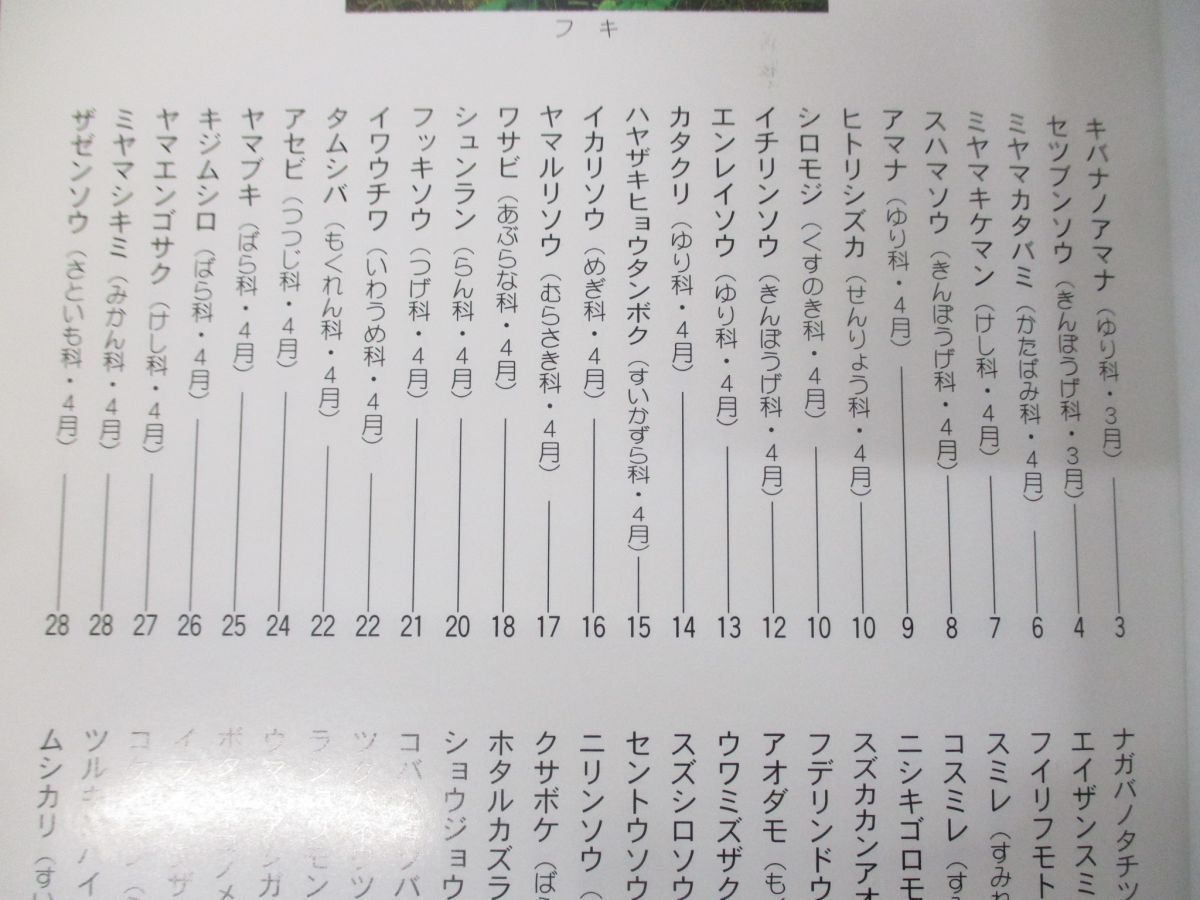 フキ
キバナノアマナ（ゆり科・3月）3
セツブンソウ（きんぽうげ科・3月）4
ミヤマカタバミ（かたばみ科・4月）6
ミヤマキケマン（けし科・4月）7
スハマソウ（きんぽうげ科・4月）8
アマナ（ゆり科・4月）9
ヒトリシズカ（せんりょう科・4月）10
シロモジ（くすのき科・4月）10
イチリンソウ（きんぽうげ科・4月）12
エンレイソウ（ゆり科・4月）13
カタクリ（ゆり科・4月）14
ハヤザキヒョウタンボク（すいかずら科・4月）15
イカリソウ（めぎ科・4月）16
ヤマルリソウ（むらさき科・4月）17
ワサビ（あぶらな科・4月）18
シュンラン（らん科・4月）20
フッキソウ（つげ科・4月）21
イワウチワ（いわうめ科・4月）22
タムシバ（もくれん科・4月）22
アセビ（つつじ科・4月）24
ヤマブキ（ばら科・4月）25
キジムシロ（ばら科・4月）26
ヤマエンゴサク（けし科・4月）27
ミヤマシキミ（みかん科・4月）28
ザゼンソウ（さといも科・4月）28
ナガバノタチツ
エイザンスミ
フイリフモト
スミレ（すみれ
コスミレ（す
ニシキゴロモ
スズカカンアオ
フデリンドウ
アオダモ（も
ウワミズザク
スズシロソウ
セントウソウ
ニリンソウ（
クサボケ（ば
ホタルカズラ
ショウジョウ
コバ
ムシカリ（すい